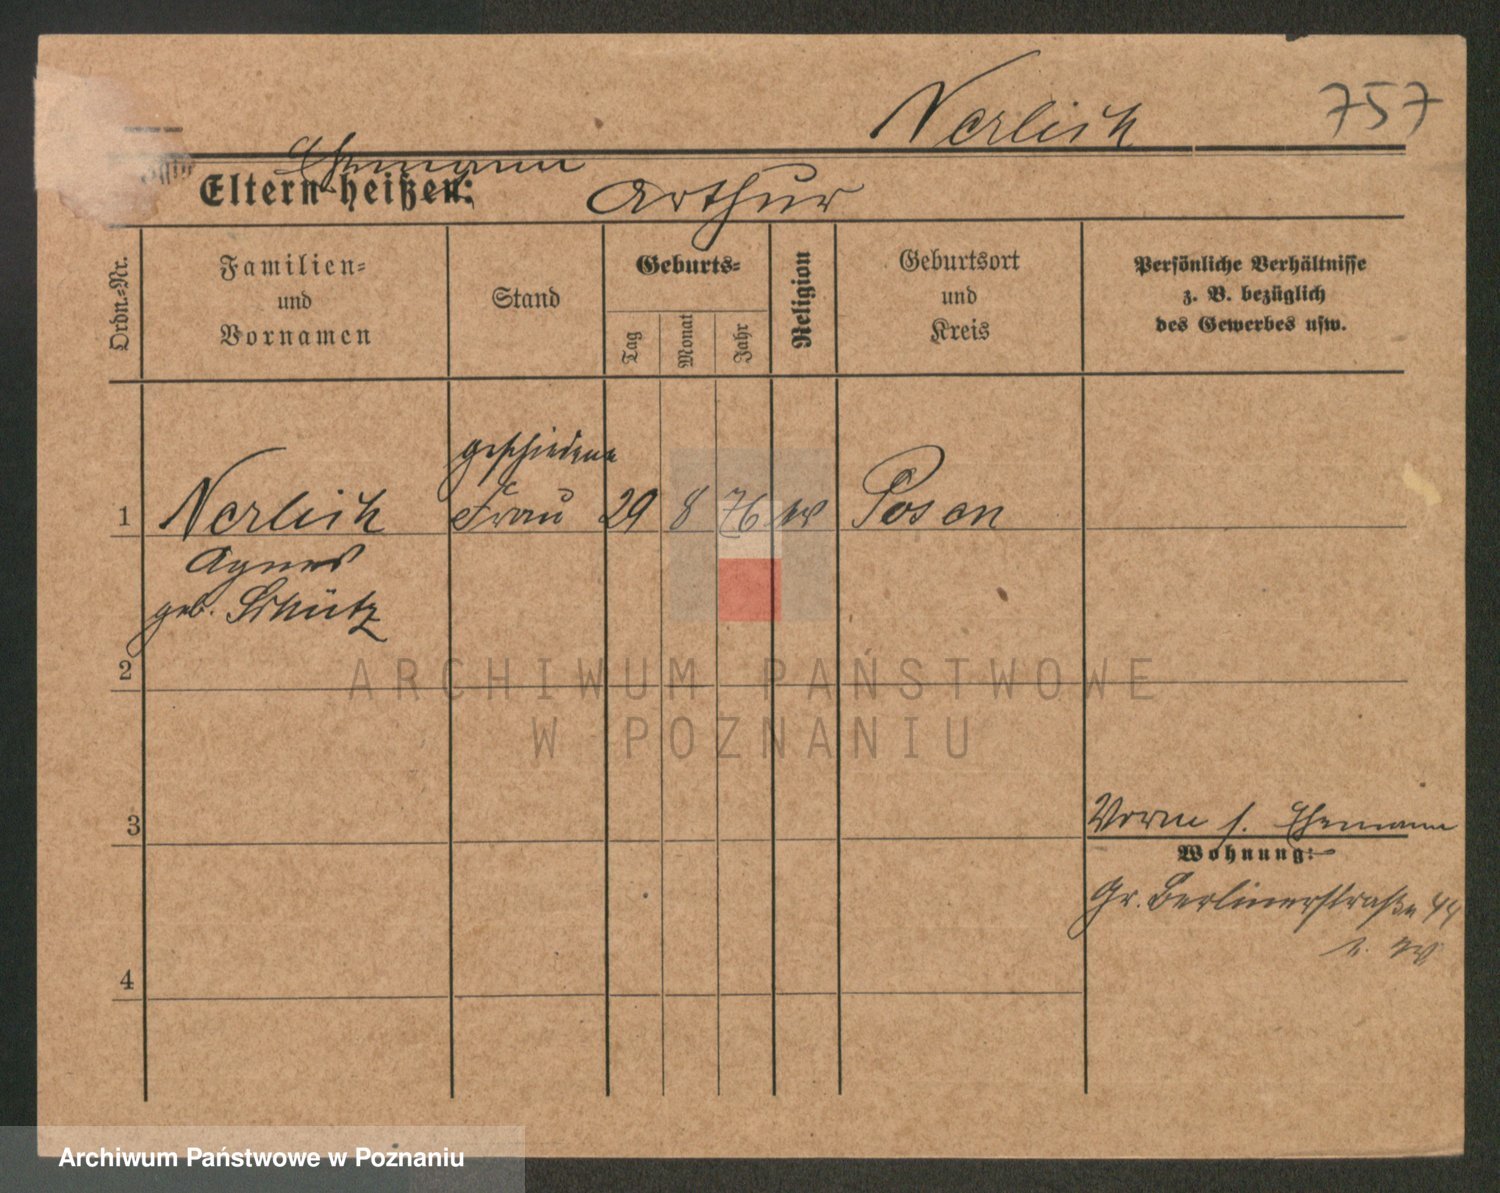 Nerlich 757
Ehemann
Eltern heißen: Arthur
Ordn.-Nr.
Familien-
und
Vornamen
Stand
Geburts-
Tag
Monat
Jahr
Religion
Geburtsort
und
Kreis
Persönliche Verhältnisse
z. B. bezüglich
des Gewerbes usw.
geschiedene
1 Nerlich Frau 29 8 76 Posen
Agnes
geb. Schütz
2
ARCHIWUM PAŃSTWOWE
W POZNANIU
3
Ehemann
Wohnung:
Gr. Berlinerstraße 44
4
Archiwum Państwowe w Poznaniu